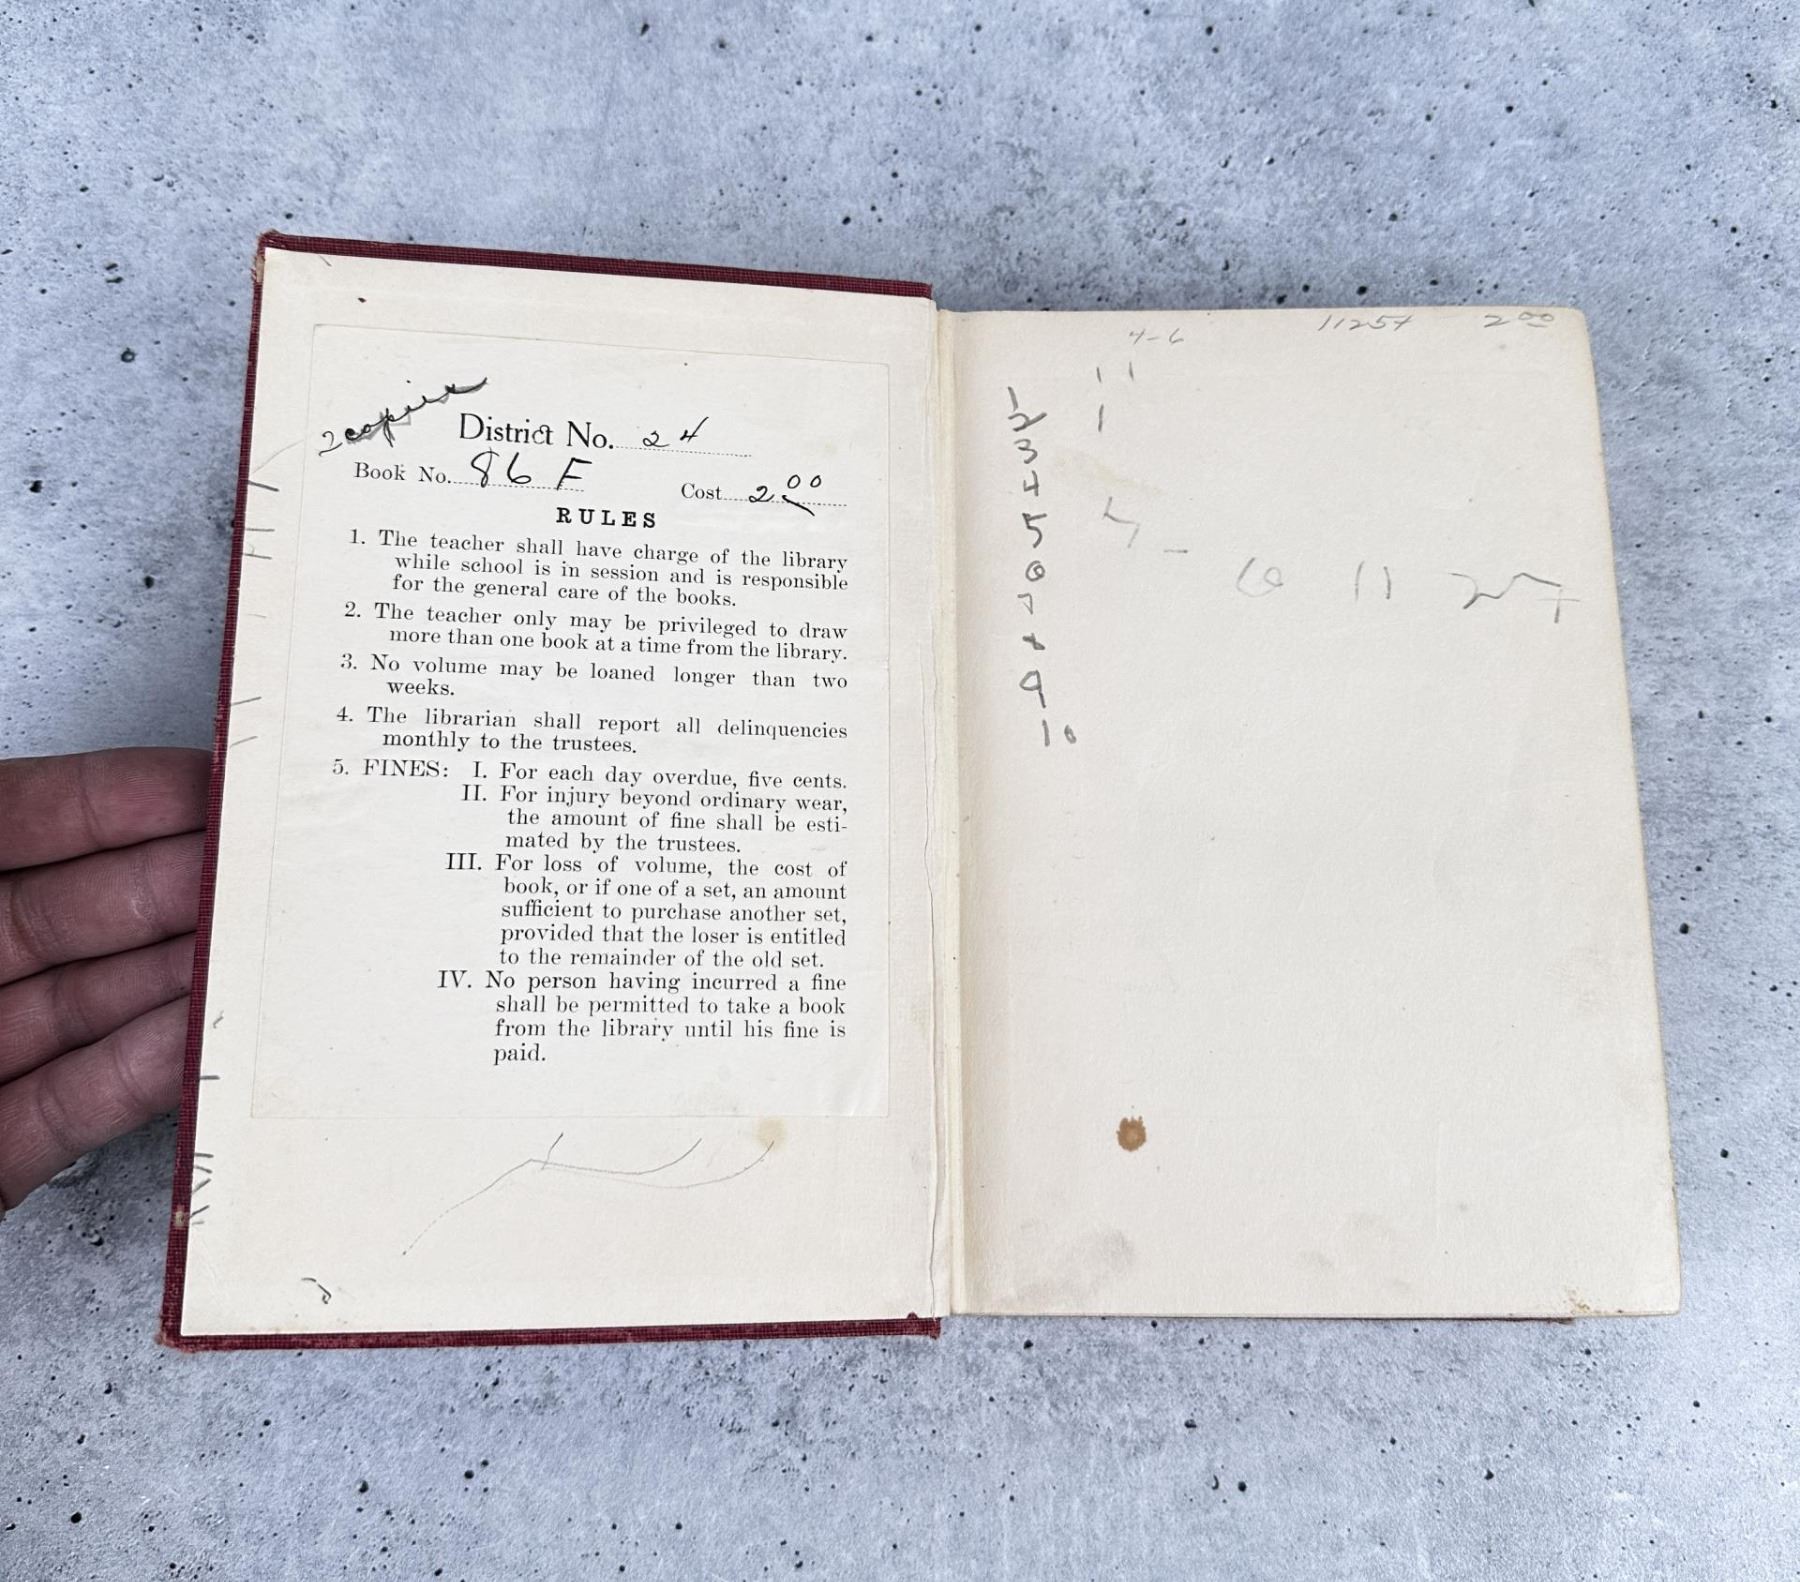 2 copies
District No. 24
Book No. 86 F Cost 2 00
RULES
1. The teacher shall have charge of the library
while school is in session and is responsible
for the general care of the books.
2. The teacher only may be privileged to draw
more than one book at a time from the library.
3. No volume may be loaned longer than two
weeks.
4. The librarian shall report all delinquencies
monthly to the trustees.
5. FINES: I. For each day overdue, five cents.
II. For injury beyond ordinary wear,
the amount of fine shall be esti-
mated by the trustees.
III. For loss of volume, the cost of
book, or if one of a set, an amount
sufficient to purchase another set,
provided that the loser is entitled
to the remainder of the old set.
IV. No person having incurred a fine
shall be permitted to take a book
from the library until his fine is
paid.
4-6 2 00
11
1
1
2
3
4
5
6
7
8
9
10
6 11